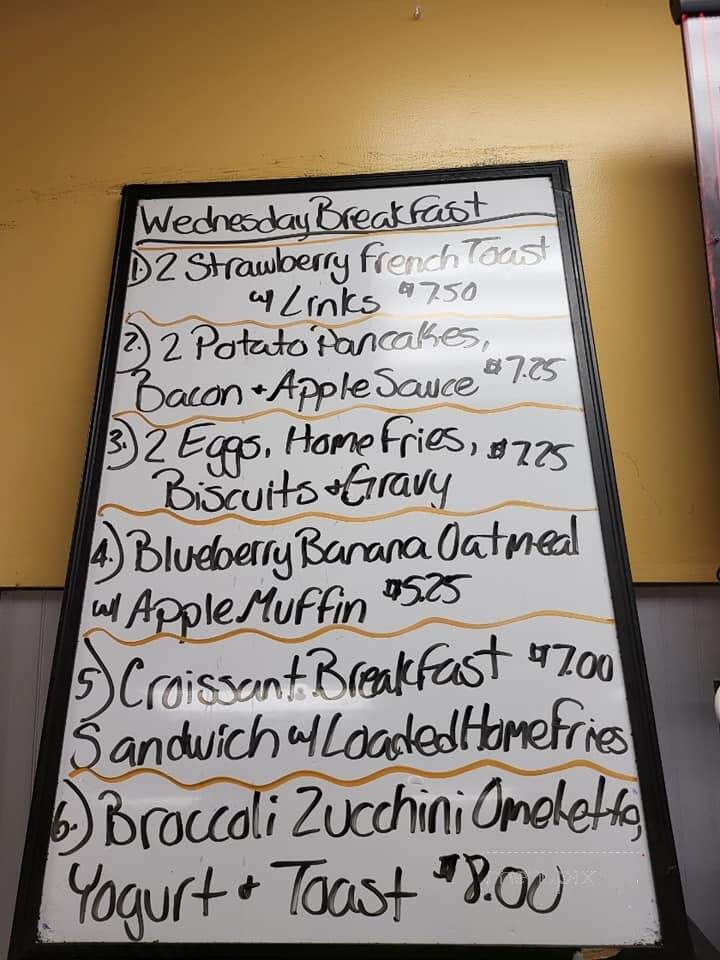 Wednesday Breakfast
1.) 2 Strawberry French Toast
w/ Links $7.50
2.) 2 Potato Pancakes,
Bacon + Apple Sauce $7.25
3.) 2 Eggs, Home Fries, $7.25
Biscuits + Gravy
4.) Blueberry Banana Oatmeal
w/ Apple Muffin $5.25
5.) Croissant Breakfast $7.00
Sandwich w/ Loaded Home Fries
6.) Broccoli Zucchini Omelette,
Yogurt + Toast $8.00